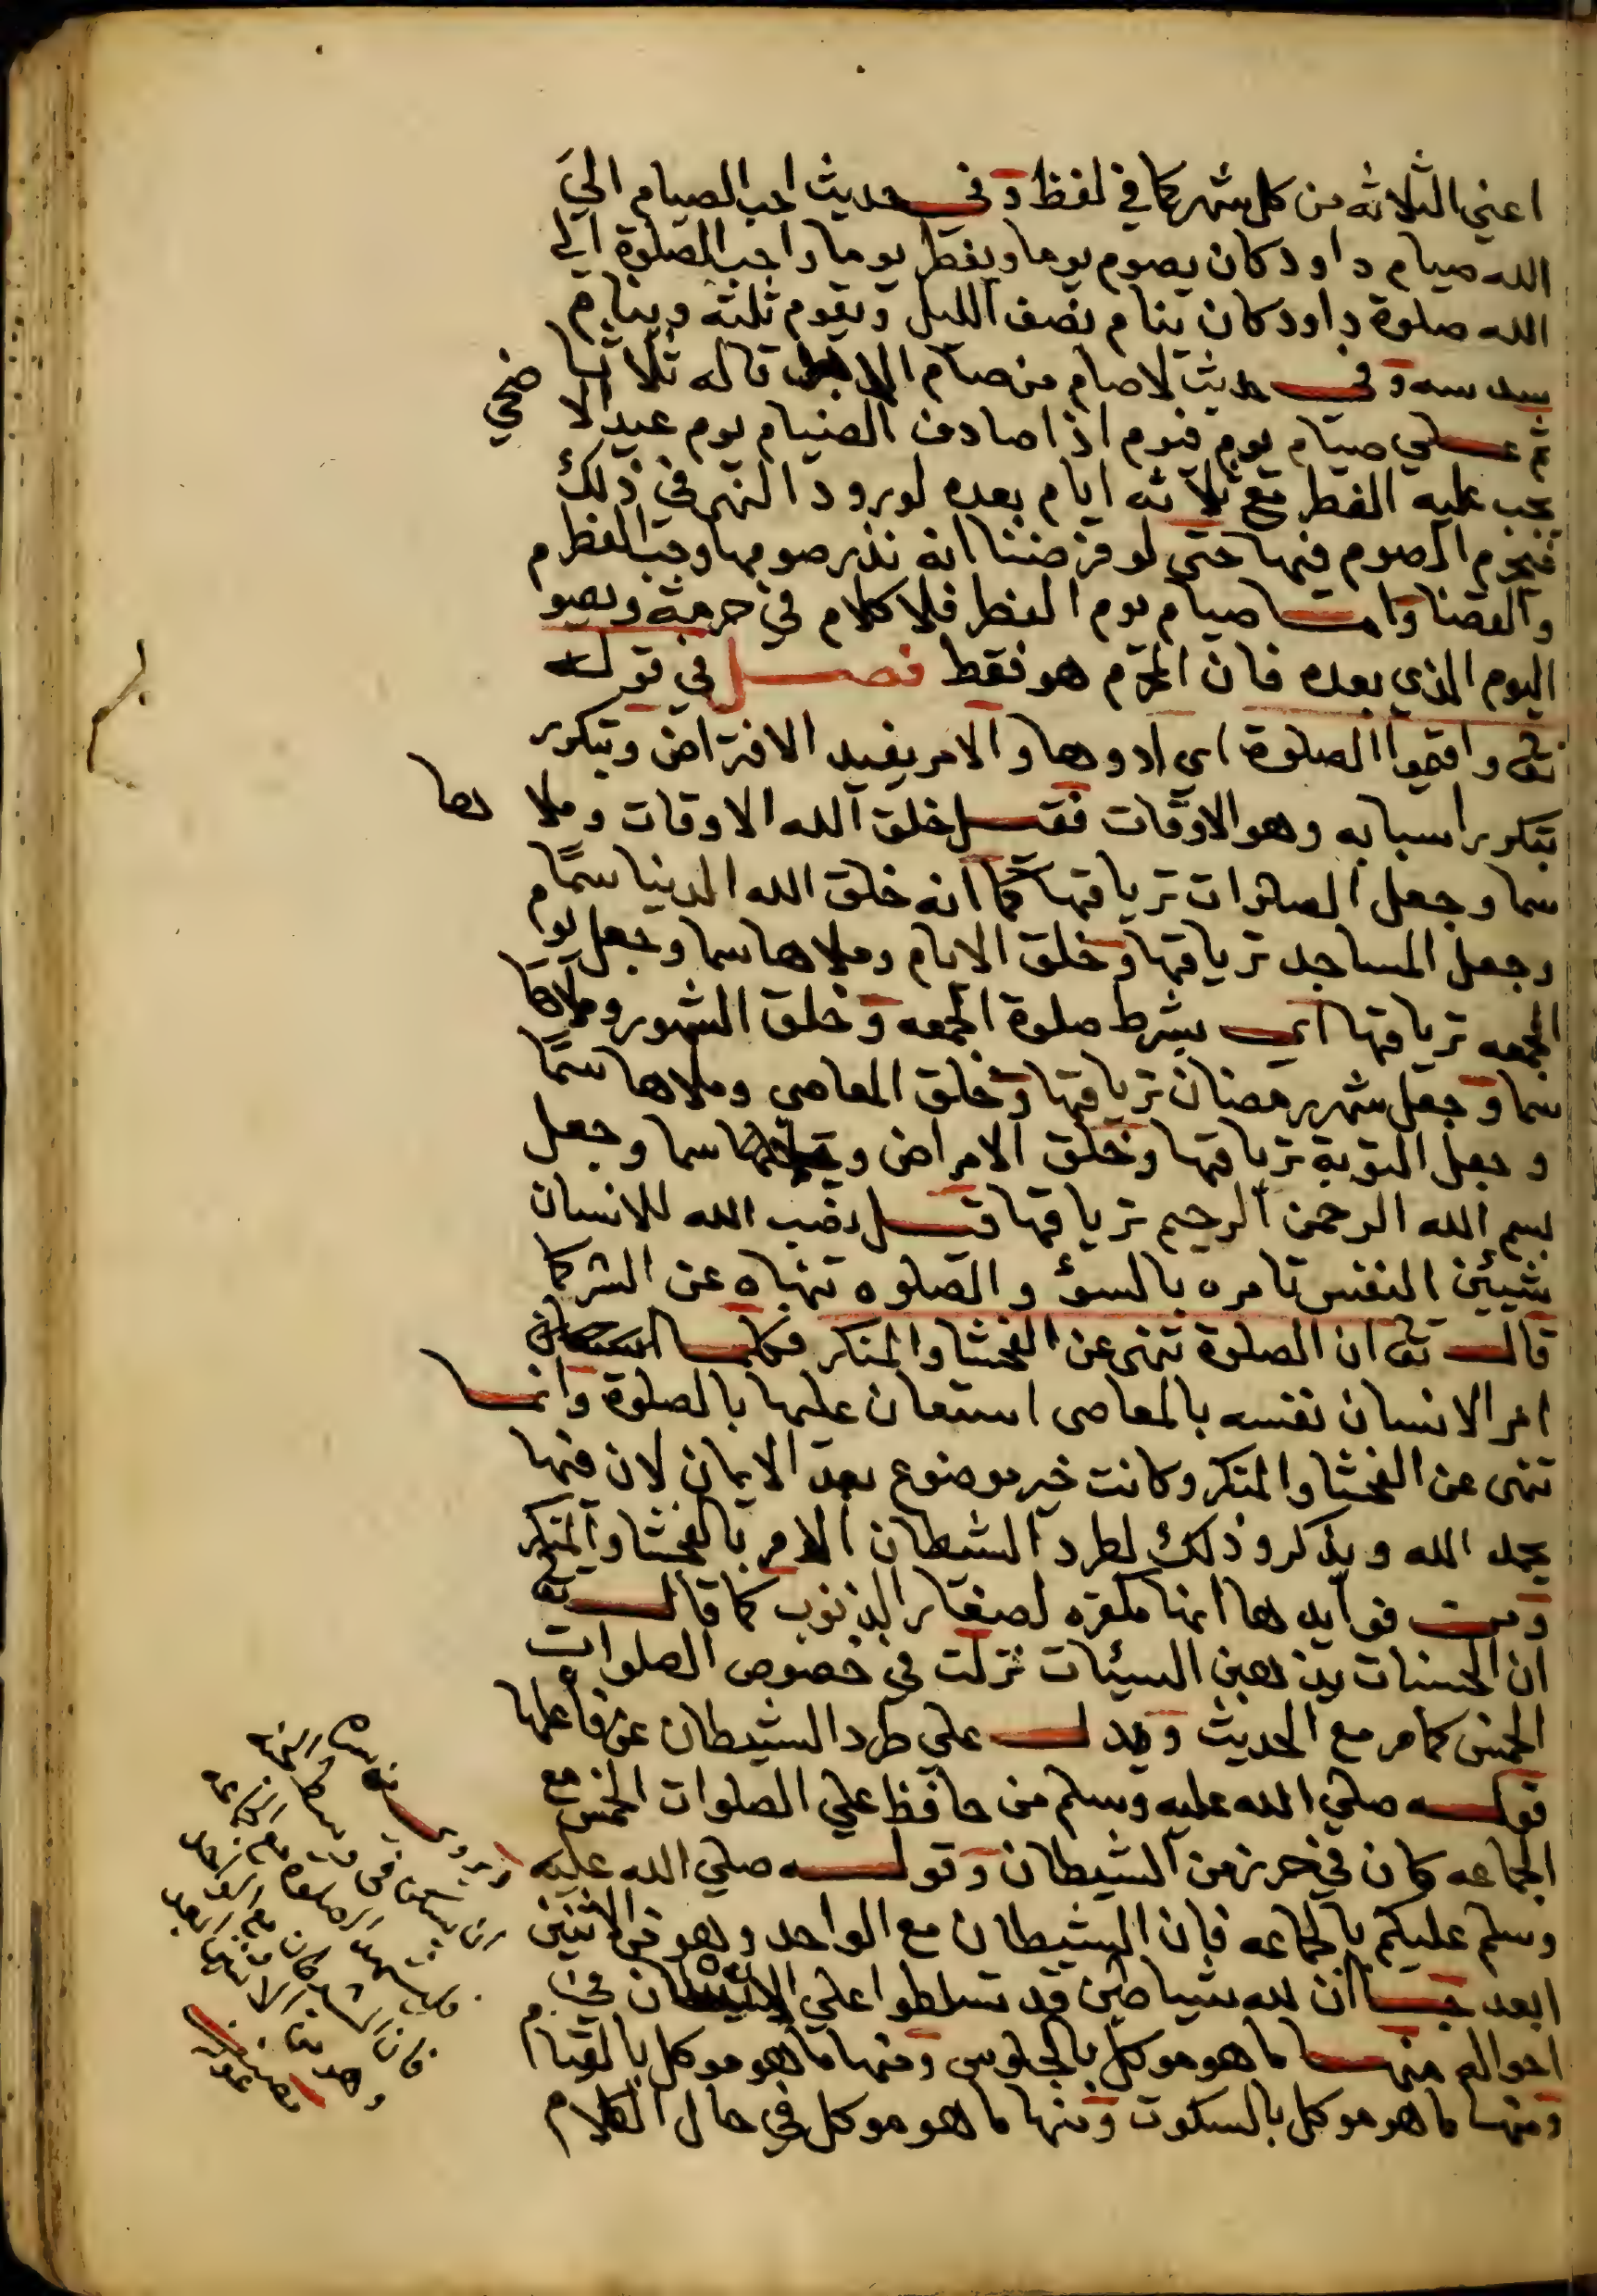 اعني الثلاثه من كل شهر كما في لفظ وفي حديث احب الصيام الي
الله صيام داود كان يصوم يوما ويفطر يوما واحب الصلوة الي
الله صلوة داود كان ينام نصف الليل ويقوم ثلثه وينام
سدسه وفي حديث لا صام من صام الابد قاله ثلاثا
ثم علي صيام يوم فيوم اذا صادف الصيام يوم عيد الاضحي
يجب عليه الفطر مع ثلاثه ايام بعده لورود النهي في ذلك
فيحرم الصوم فيها حتي لو فرضنا انه نذر صومها وجب الفطر م
والقضا واما صيام يوم الفطر فلا كلام في حرمته ويصو
اليوم الذي بعده فان المحرم هو فقط فصل في قوله
تعالى واقيموا الصلوة اي ادوها والامر يفيد الافتراض ويتكرر
بتكرر اسبابه وهو الاوقات فقيل خلق الله الاوقات وملاها
سما وجعل الصلوات ترياقها كما انه خلق الله الدنيا سمًا م
وجعل المساجد ترياقها وخلق الايام وملاها سما وجعل يوم
الجمعه ترياقها اي بشرط صلوة الجمعه وخلق الشهور وملاها
سما وجعل شهر رمضان ترياقها وخلق المعاصي وملاها سمًا
وجعل التوبة ترياقها وخلق الامراض وجعلها سما وجعل
بسم الله الرحمن الرحيم ترياقها قيل نصب الله للانسان
شيئين النفس تامره بالسوء والصلوه تنهاه عن الشر كما
قال تعالى ان الصلوة تنهى عن الفحشا والمنكر فكلما
امر الانسان نفسه بالمعاصى استعان عليها بالصلوة وانما
تنهى عن الفحشا والمنكر وكانت خير موضوع بعد الايمان لان فيها
يحمد الله ويذكر وذلك لطرد الشيطان الامر بالفحشا والمنكر
ومن فوايدها انها مكفره لصغاير الذنوب كما قال تعالى
ان الحسنات يذهبن السيئات نزلت في خصوص الصلوات
الخمس كما مر مع الحديث ويدل علي طرد الشيطان عن فاعلها
قوله صلي الله عليه وسلم من حافظ علي الصلوات الخمس مع
الجماعه كان في حرز من الشيطان وقوله صلي الله عليه
وسلم عليكم بالجماعه فان الشيطان مع الواحد وهو من الاثنين
ابعد ان لله شياطين قد تسلطوا علي الانسان في
احوالهم منها ما هو موكل بالجلوس ومنها ما هو موكل بالقيام
ومنها ما هو موكل بالسكوت ومنها ما هو موكل في حال الكلام